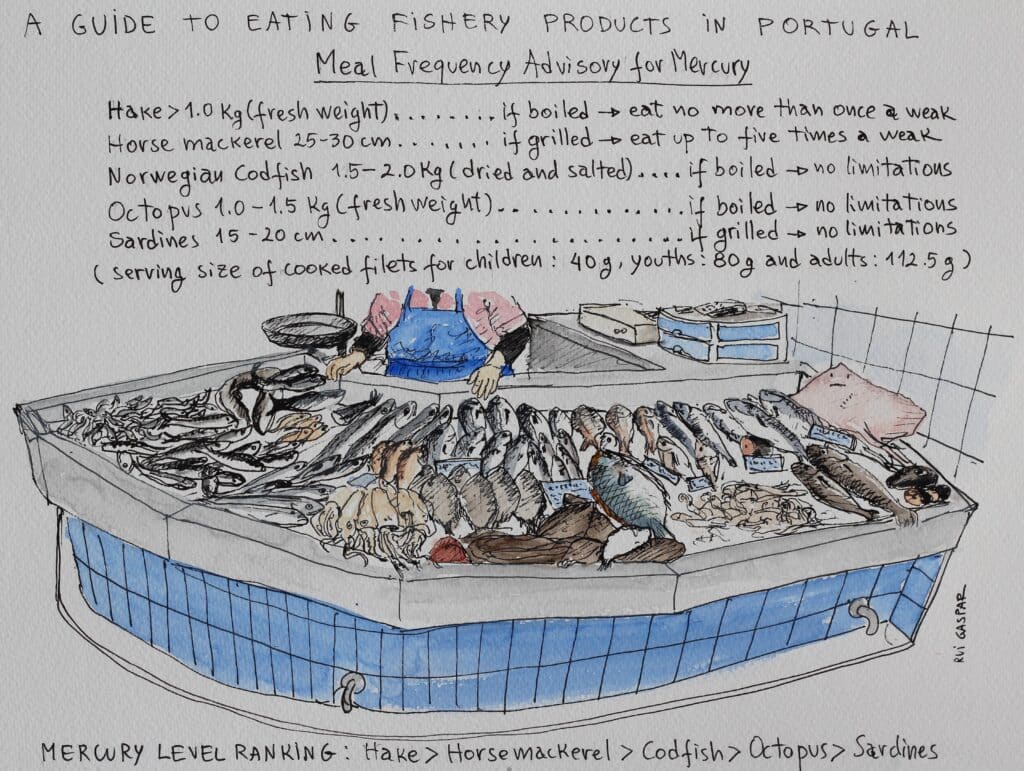 A GUIDE TO EATING FISHERY PRODUCTS IN PORTUGAL
Meal Frequency Advisory for Mercury
Hake > 1.0 Kg (fresh weight)......... if boiled → eat no more than once a weak
Horse mackerel 25-30 cm....... if grilled → eat up to five times a weak
Norwegian Codfish 1.5-2.0 Kg (dried and salted).... if boiled → no limitations
Octopus 1.0-1.5 Kg (fresh weight)................ if boiled → no limitations
Sardines 15-20 cm............................ if grilled → no limitations
(serving size of cooked filets for children: 40g, youths: 80g and adults: 112.5g)
RUI GASPAR
MERCURY LEVEL RANKING: Hake > Horse mackerel > Codfish > Octopus > Sardines